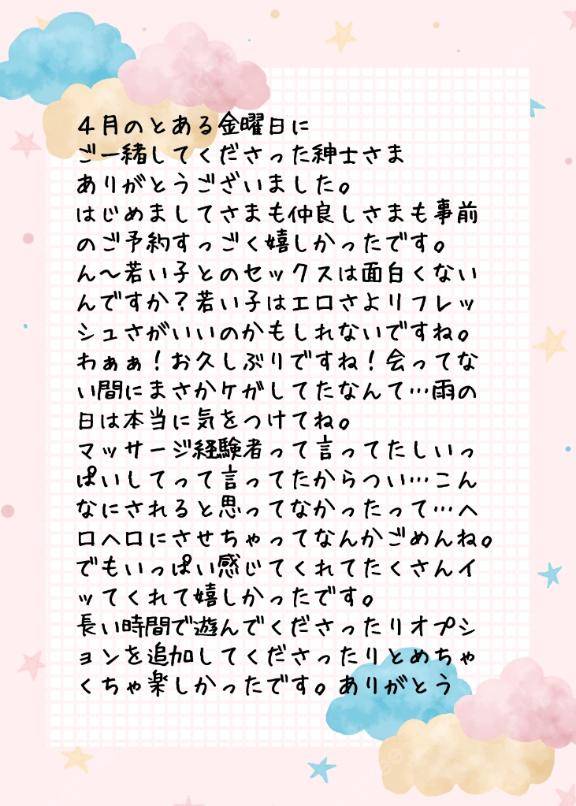 4月のとある金曜日に
ご一緒してくださった紳士さま
ありがとうございました。
はじめましてさまも仲良しさまも事前
のご予約すっごく嬉しかったです。
ん〜若い子とのセックスは面白くない
んですか？若い子はエロさよりフレッ
シュさがいいのかもしれないですね。
わぁぁ！お久しぶりですね！会ってな
い間にまさかケがしてたなんて…雨の
日は本当に気をつけてね。
マッサージ経験者って言ってたしいっ
ぱいしてって言ってたからつい…こん
なにされると思ってなかったって…ヘ
ロヘロにさせちゃってなんかごめんね。
でもいっぱい感じてくれてたくさんイ
ッてくれて嬉しかったです。
長い時間で遊んでくださったりオプシ
ョンを追加してくださったりとめちゃ
くちゃ楽しかったです。ありがとう